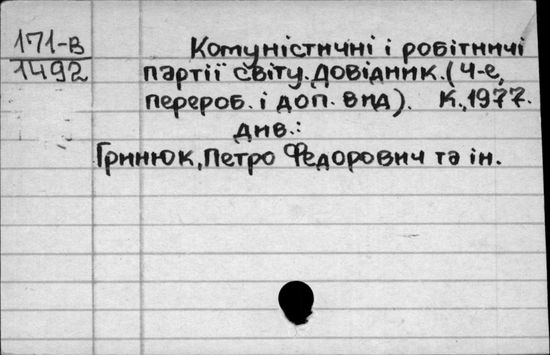 171-В
1492
Комуністичні і робітничі
партії світу. Довідник. (4-е,
перероб. і доп. вид). К., 1977.
див.:
Гринюк, Петро Федорович та ін.